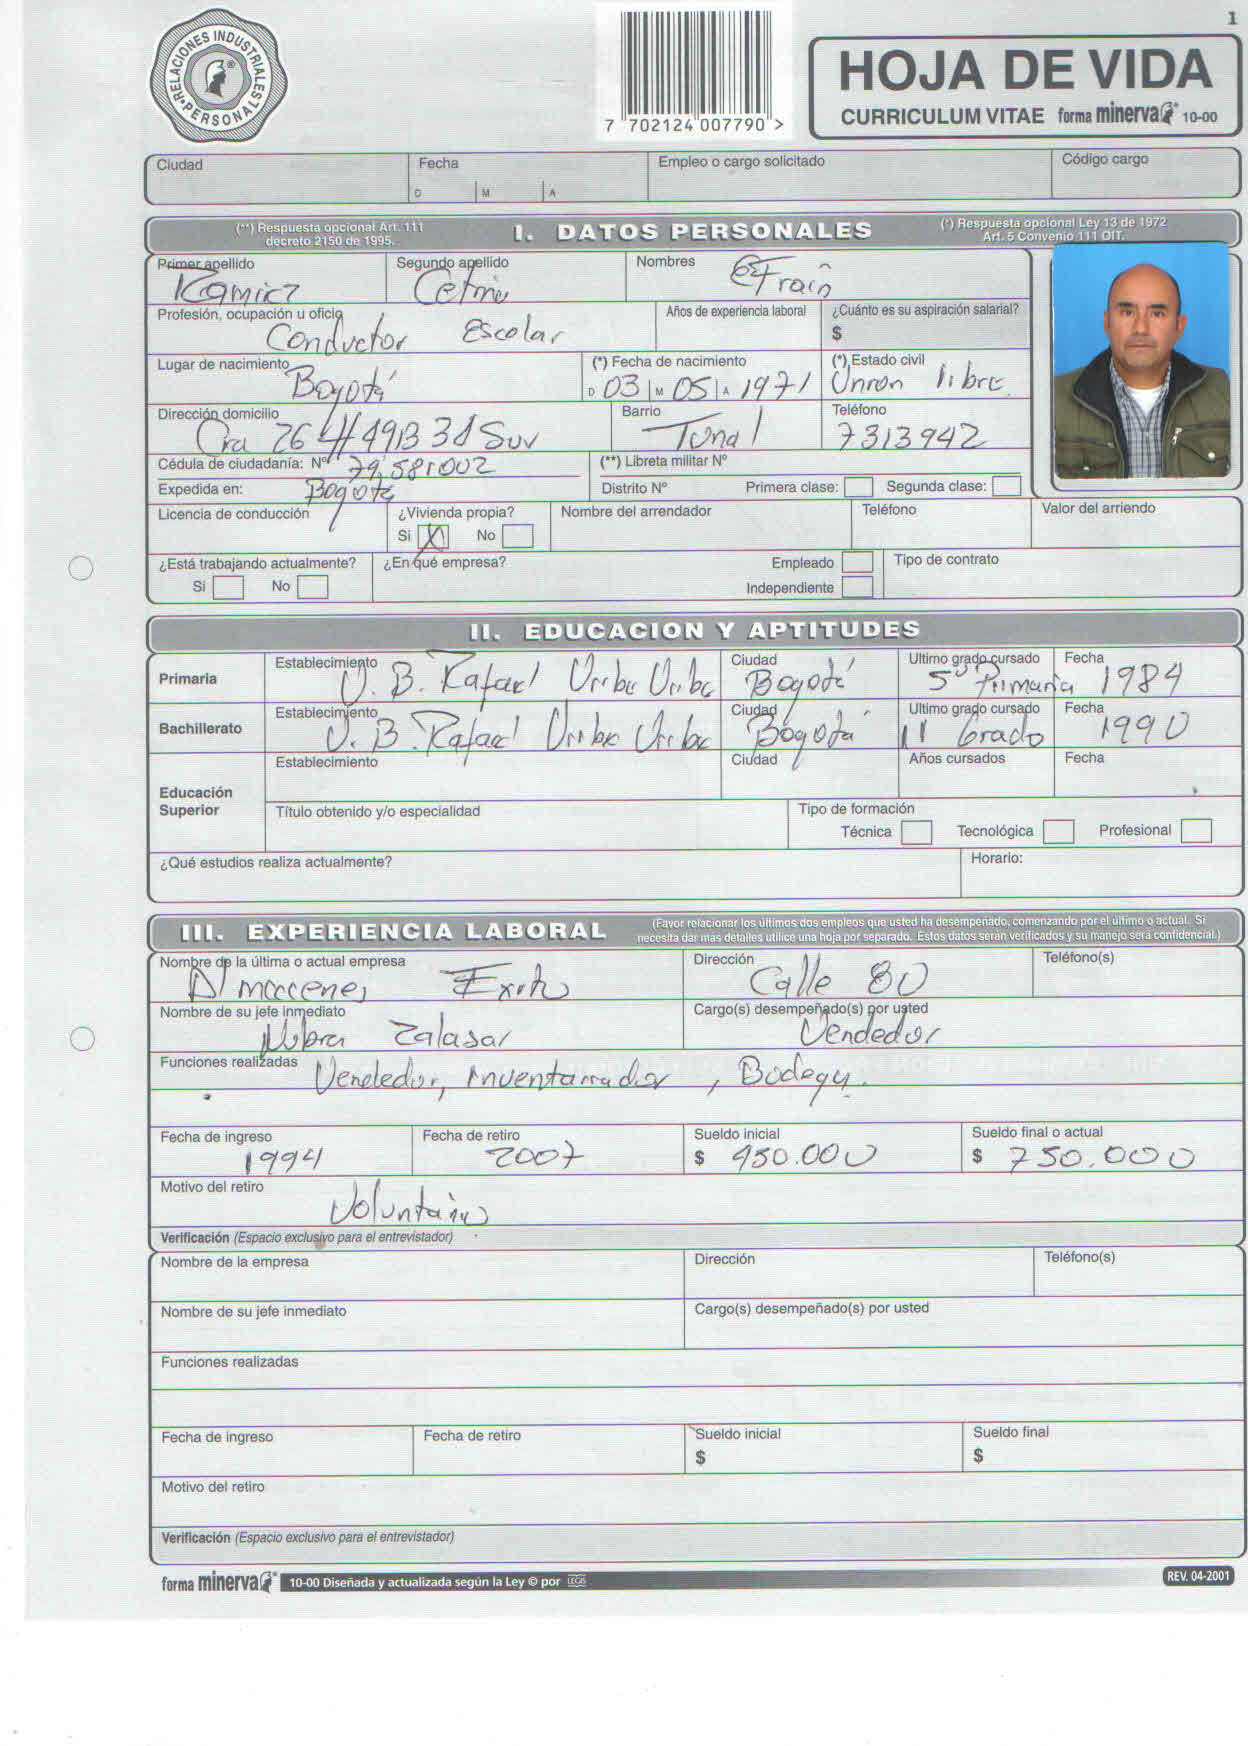 1
RELACIONES INDUSTRIALES
PERSONALES
7 702124 007790 >
HOJA DE VIDA
CURRICULUM VITAE forma minerva 10-00
Ciudad
Fecha
D M A
Empleo o cargo solicitado
Código cargo
(**) Respuesta opcional Art. 111
decreto 2150 de 1995.
I. DATOS PERSONALES
(*) Respuesta opcional Ley 13 de 1972
Art. 5 Convenio 111 OIT.
Primer apellido Segundo apellido Nombres
Ramirz Efraín
Profesión, ocupación u oficio Años de experiencia laboral ¿Cuánto es su aspiración salarial?
Conductor Escolar $
Lugar de nacimiento (*) Fecha de nacimiento (*) Estado civil
Bogotá D 03 M 05 A 1971 Unión libre.
Dirección domicilio Barrio Teléfono
Cra 26 # 49B 31 Sur Tunal 7313942
Cédula de ciudadanía: Nº 79,581002 (**) Libreta militar Nº
Expedida en: Bogotá Distrito Nº Primera clase: Segunda clase:
Licencia de conducción ¿Vivienda propia? Nombre del arrendador Teléfono Valor del arriendo
Si X No
¿Está trabajando actualmente? ¿En qué empresa? Empleado Tipo de contrato
Si No Independiente
II. EDUCACION Y APTITUDES
Establecimiento Ciudad Ultimo grado cursado Fecha
Primaria B. Rafael Uribe Uribe Bogotá 5º Primaria 1984
Establecimiento Ciudad Ultimo grado cursado Fecha
Bachillerato B. Rafael Uribe Uribe Bogotá 11 Grado 1990
Establecimiento Ciudad Años cursados Fecha
Educación
Superior
Título obtenido y/o especialidad Tipo de formación
Técnica Tecnológica Profesional
¿Qué estudios realiza actualmente? Horario:
III. EXPERIENCIA LABORAL
(Favor relacionar los últimos dos empleos que usted ha desempeñado, comenzando por el último o actual. Si
necesita dar más detalles utilice una hoja por separado. Estos datos serán verificados y su manejo será confidencial.)
Nombre de la última o actual empresa Dirección Teléfono(s)
Almaccenes Exito Calle 80
Nombre de su jefe inmediato Cargo(s) desempeñado(s) por usted
Zalasar Vendedor
Funciones realizadas
Vendedor, inventarrador, Bodega.
Fecha de ingreso Fecha de retiro Sueldo inicial Sueldo final o actual
1994 2007 $ 450.000 $ 750.000
Motivo del retiro
Voluntario
Verificación (Espacio exclusivo para el entrevistador)
Nombre de la empresa Dirección Teléfono(s)
Nombre de su jefe inmediato Cargo(s) desempeñado(s) por usted
Funciones realizadas
Fecha de ingreso Fecha de retiro Sueldo inicial Sueldo final
$ $
Motivo del retiro
Verificación (Espacio exclusivo para el entrevistador)
forma minerva 10-00 Diseñada y actualizada según la Ley © por LEGIS
REV. 04-2001